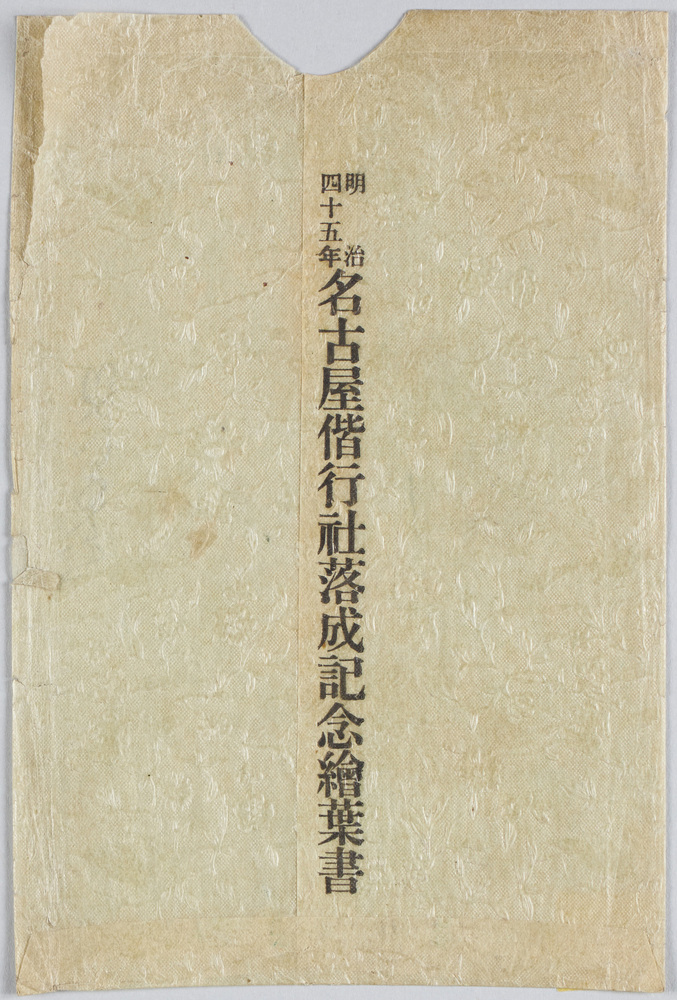 明治
四十五年
名古屋偕行社落成記念繪葉書